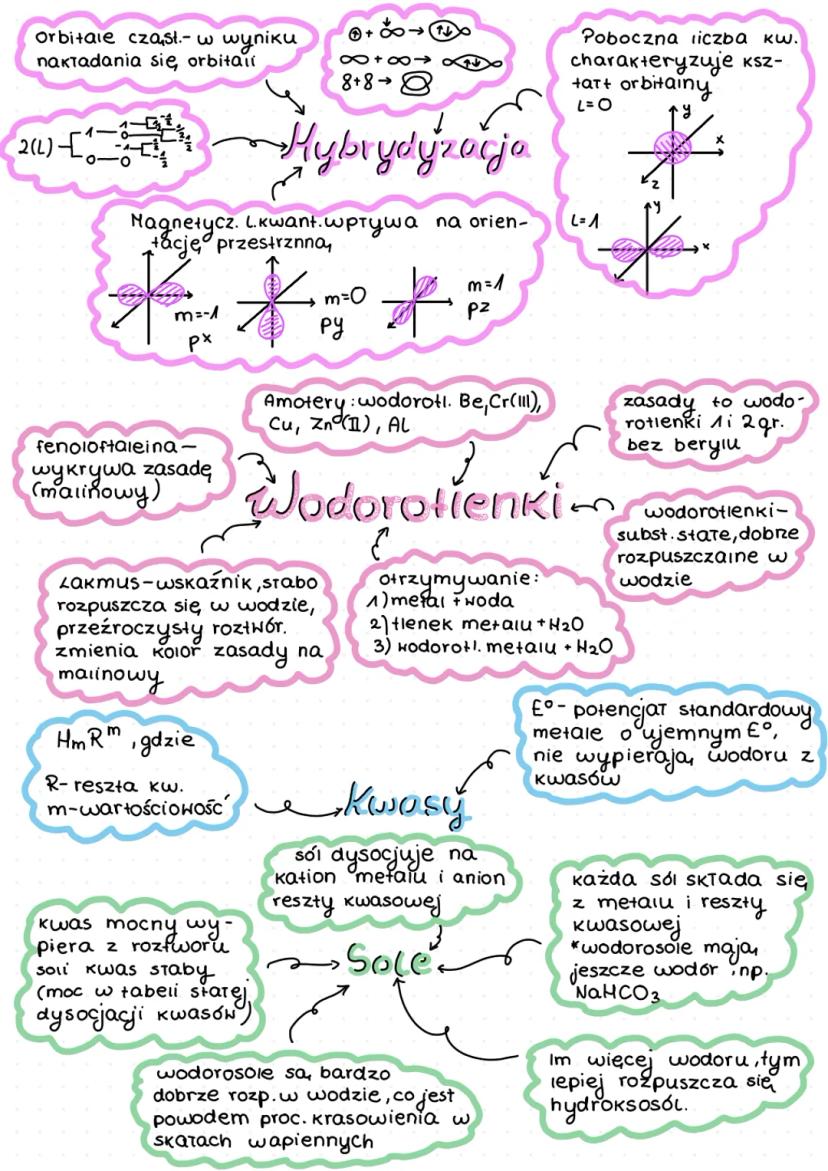 Orbitale cząst. - w wyniku
nakładania się orbitali
⊕ + ∞ →
∞ + ∞ →
8+8 →
Poboczna liczba kw.
charakteryzuje ksz-
tałt orbitalny
L=0
y
x
z
L=1
y
x
2(L)
1
1
0
-1
0
0
Hybrydyzacja
Magnetycz. l.kwant. wpływa na orien-
tację przestrzną
m=-1
px
m=0
py
m=1
pz
Amotery: wodorotl. Be, Cr(III),
Cu, Zn(II), Al
zasady to wodo-
rotlenki 1 i 2 gr.
bez berylu
fenoloftaleina -
wykrywa zasadę
(malinowy)
Wodorotlenki
wodorotlenki -
subst. stałe, dobrze
rozpuszczalne w
wodzie
Lakmus - wskaźnik, słabo
rozpuszcza się w wodzie,
przeźroczysty roztwór.
zmienia kolor zasady na
malinowy
otrzymywanie:
1) metal + woda
2) tlenek metalu + H2O
3) wodorotl. metalu + H2O
HmR^m, gdzie
R - reszta kw.
m - wartościowość
E° - potencjał standardowy
metale o ujemnym E°,
nie wypierają wodoru z
kwasów
Kwasy
sól dysocjuje na
kation metalu i anion
reszty kwasowej
każda sól składa się
z metalu i reszty
kwasowej
*wodorosole mają
jeszcze wodór, np.
NaHCO3
kwas mocny wy-
piera z roztworu
soli kwas słaby
(moc w tabeli stałej
dysocjacji kwasów)
Sole
wodorosole są bardzo
dobrze rozp. w wodzie, co jest
powodem proc. krasowienia w
skałach wapiennych
Im więcej wodoru, tym
lepiej rozpuszcza się
hydroksosól.